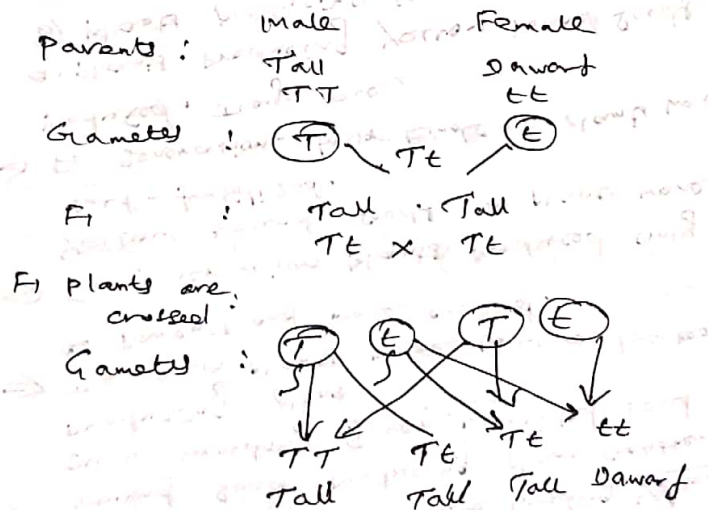 Male Female
Parents : Tall Dawarf
TT tt
Gametes : T t
Tt
F1 : Tall . Tall
Tt x Tt
F1 Plants are
crossed :
Gametes : T t T t
TT Tt Tt tt
Tall Tall Tall Dawarf